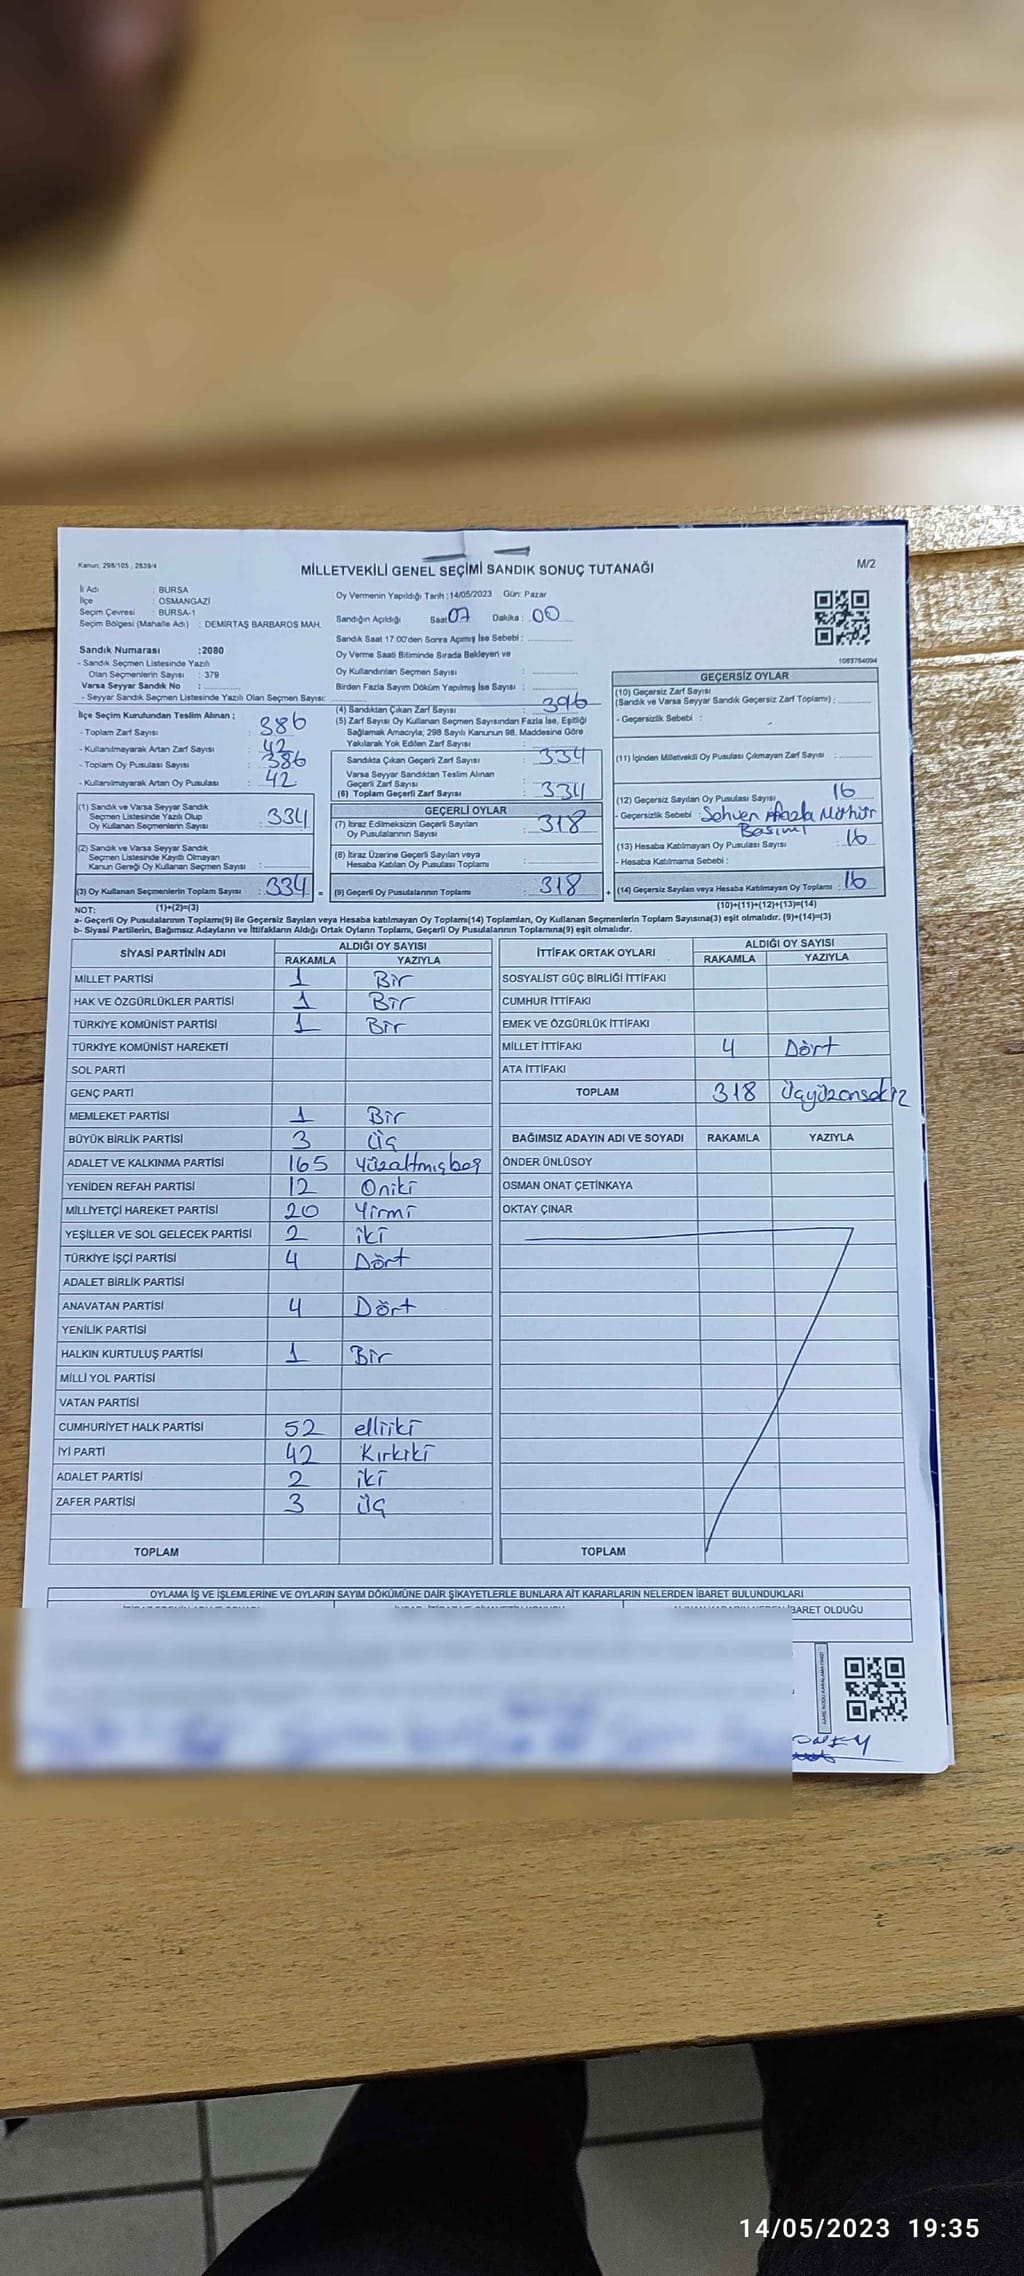 Kanun, 298/105, 2839/4
M/2
MİLLETVEKİLİ GENEL SEÇİMİ SANDIK SONUÇ TUTANAĞI
İl Adı : BURSA
İlçe : OSMANGAZİ
Seçim Çevresi : BURSA-1
Seçim Bölgesi (Mahalle Adı) : DEMİRTAŞ BARBAROS MAH.
Sandık Numarası :2080
- Sandık Seçmen Listesinde Yazılı
Olan Seçmenlerin Sayısı : 379
Varsa Seyyar Sandık No :
- Seyyar Sandık Seçmen Listesinde Yazılı Olan Seçmen Sayısı:
Oy Vermenin Yapıldığı Tarih :14/05/2023 Gün: Pazar
Sandığın Açıldığı Saat 07 Dakika : 00
Sandık Saat 17.00'den Sonra Açılmış İse Sebebi :
Oy Verme Saati Bitiminde Sırada Bekleyen ve
Oy Kullandırılan Seçmen Sayısı :
Birden Fazla Sayım Döküm Yapılmış İse Sayısı :
1083764094
İlçe Seçim Kurulundan Teslim Alınan ;
- Toplam Zarf Sayısı : 386
- Kullanılmayarak Artan Zarf Sayısı : 42
- Toplam Oy Pusulası Sayısı : 386
- Kullanılmayarak Artan Oy Pusulası : 42
(1) Sandık ve Varsa Seyyar Sandık
Seçmen Listesinde Yazılı Olup
Oy Kullanan Seçmenlerin Sayısı : 334
(2) Sandık ve Varsa Seyyar Sandık
Seçmen Listesinde Kayıtlı Olmayan
Kanun Gereği Oy Kullanan Seçmen Sayısı :
(3) Oy Kullanan Seçmenlerin Toplam Sayısı : 334 =
(1)+(2)=(3)
(4) Sandıktan Çıkan Zarf Sayısı : 396
(5) Zarf Sayısı Oy Kullanan Seçmen Sayısından Fazla İse, Eşitliği
Sağlamak Amacıyla, 298 Sayılı Kanunun 98. Maddesine Göre
Yakılarak Yok Edilen Zarf Sayısı :
Sandıkta Çıkan Geçerli Zarf Sayısı : 334
Varsa Seyyar Sandıktan Teslim Alınan
Geçerli Zarf Sayısı :
(6) Toplam Geçerli Zarf Sayısı : 334
GEÇERLİ OYLAR
(7) İtiraz Edilmeksizin Geçerli Sayılan
Oy Pusulalarının Sayısı : 318
(8) İtiraz Üzerine Geçerli Sayılan veya
Hesaba Katılan Oy Pusulası Toplamı :
(9) Geçerli Oy Pusulalarının Toplamı : 318 +
GEÇERSİZ OYLAR
(10) Geçersiz Zarf Sayısı
(Sandık ve Varsa Seyyar Sandık Geçersiz Zarf Toplamı) :
- Geçersizlik Sebebi :
(11) İçinden Milletvekili Oy Pusulası Çıkmayan Zarf Sayısı :
(12) Geçersiz Sayılan Oy Pusulası Sayısı : 16
- Geçersizlik Sebebi : Sehven Fazla Mühür
Basımı
(13) Hesaba Katılmayan Oy Pusulası Sayısı : 16
- Hesaba Katılmama Sebebi :
(14) Geçersiz Sayılan veya Hesaba Katılmayan Oy Toplamı : 16
(10)+(11)+(12)+(13)=(14)
NOT:
a- Geçerli Oy Pusulalarının Toplamı(9) ile Geçersiz Sayılan veya Hesaba katılmayan Oy Toplamı(14) Toplamları, Oy Kullanan Seçmenlerin Toplam Sayısına(3) eşit olmalıdır. (9)+(14)=(3)
b- Siyasi Partilerin, Bağımsız Adayların ve İttifakların Aldığı Ortak Oyların Toplamı, Geçerli Oy Pusulalarının Toplamına(9) eşit olmalıdır.
SİYASİ PARTİNİN ADI ALDIĞI OY SAYISI
RAKAMLA YAZIYLA
MİLLET PARTİSİ 1 Bir
HAK VE ÖZGÜRLÜKLER PARTİSİ 1 Bir
TÜRKİYE KOMÜNİST PARTİSİ 1 Bir
TÜRKİYE KOMÜNİST HAREKETİ
SOL PARTİ
GENÇ PARTİ
MEMLEKET PARTİSİ 1 Bir
BÜYÜK BİRLİK PARTİSİ 3 Üç
ADALET VE KALKINMA PARTİSİ 165 Yüzaltmışbeş
YENİDEN REFAH PARTİSİ 12 Oniki
MİLLİYETÇİ HAREKET PARTİSİ 20 Yirmi
YEŞİLLER VE SOL GELECEK PARTİSİ 2 iki
TÜRKİYE İŞÇİ PARTİSİ 4 Dört
ADALET BİRLİK PARTİSİ
ANAVATAN PARTİSİ 4 Dört
YENİLİK PARTİSİ
HALKIN KURTULUŞ PARTİSİ 1 Bir
MİLLİ YOL PARTİSİ
VATAN PARTİSİ
CUMHURİYET HALK PARTİSİ 52 elliiki
İYİ PARTİ 42 Kırkiki
ADALET PARTİSİ 2 iki
ZAFER PARTİSİ 3 üç
TOPLAM
İTTİFAK ORTAK OYLARI ALDIĞI OY SAYISI
RAKAMLA YAZIYLA
SOSYALİST GÜÇ BİRLİĞİ İTTİFAKI
CUMHUR İTTİFAKI
EMEK VE ÖZGÜRLÜK İTTİFAKI
MİLLET İTTİFAKI 4 Dört
ATA İTTİFAKI
TOPLAM 318 Üçyüzonsekiz
BAĞIMSIZ ADAYIN ADI VE SOYADI RAKAMLA YAZIYLA
ÖNDER ÜNLÜSOY
OSMAN ONAT ÇETİNKAYA
OKTAY ÇINAR
TOPLAM
OYLAMA İŞ VE İŞLEMLERİNE VE OYLARIN SAYIM DÖKÜMÜNE DAİR ŞİKAYETLERLE BUNLARA AİT KARARLARIN NELERDEN İBARET BULUNDUKLARI
İBARET OLDUĞU
14/05/2023 19:35